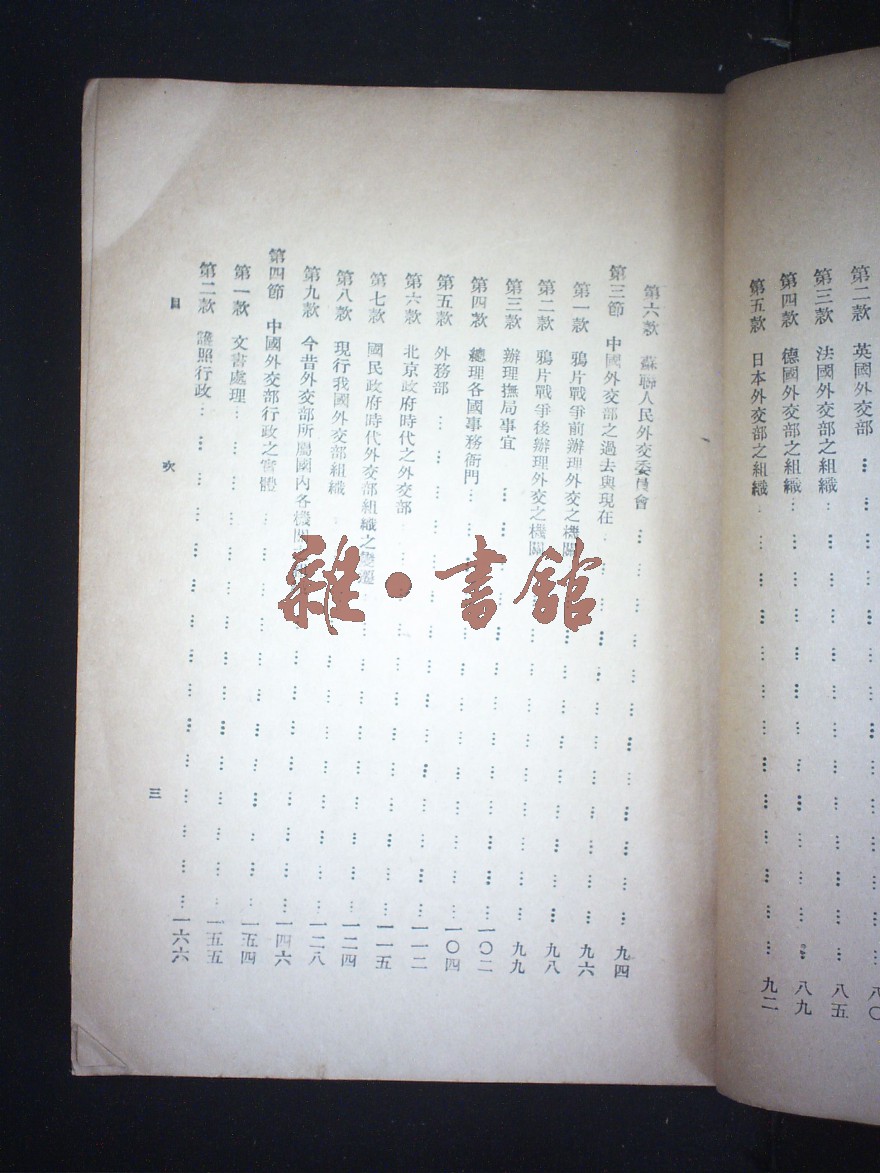 第二款 英國外交部 … 八〇
第三款 法國外交部之組織 … 八五
第四款 德國外交部之組織 … 八九
第五款 日本外交部之組織 … 九二
第六款 蘇聯人民外交委員會 … 九四
第三節 中國外交部之過去與現在 … 九六
第一款 鴉片戰爭前辦理外交之機關 … 九八
第二款 鴉片戰爭後辦理外交之機關 … 九九
第三款 辦理撫局事宜 … 一〇二
第四款 總理各國事務衙門 … 一〇四
第五款 外務部 … 一一二
第六款 北京政府時代之外交部 … 一一五
第七款 國民政府時代外交部組織之變遷 … 一二四
第八款 現行我國外交部組織 … 一二八
第九款 今昔外交部所屬國內各機關 … 一四六
第四節 中國外交部行政之實體 … 一五四
第一款 文書處理 … 一五五
第二款 護照行政 … 一六六
目 次 三
雜·書館